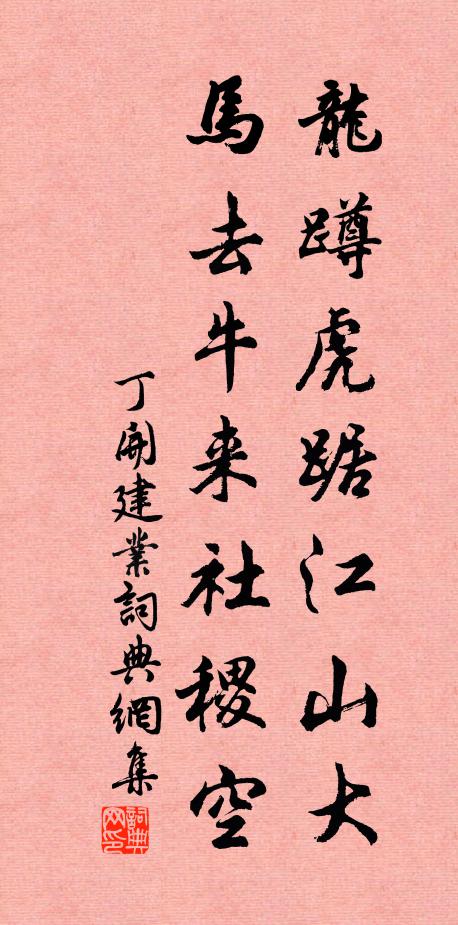 龍蹲虎踞江山大
馬去牛来社稷空
丁開建業詞典網集
詞典网印